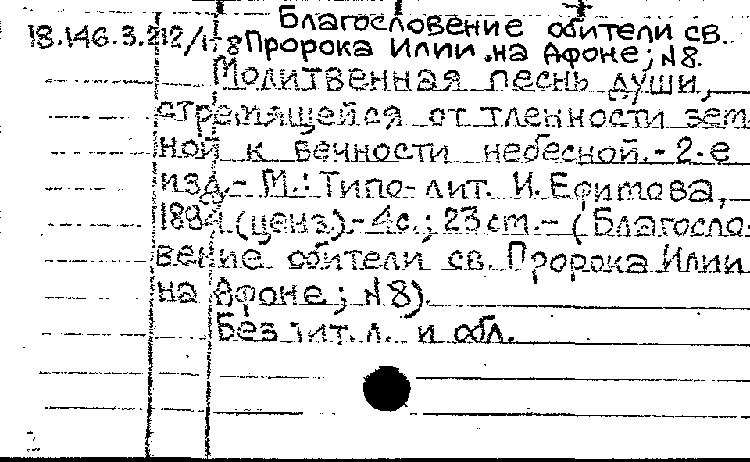 Благословение обители св.
18.146.3.212/1-8 Пророка Илии на Афоне; N8.
Молитвенная песнь души,
стремящейся от тленности зем-
ной к вечности небесной.- 2-е
изд.- М.: Типо-лит. И. Ефимова,
1894 (ценз.).- 4с.; 23см.- (Благосло-
вение обители св. Пророка Илии
на Афоне; N8).
Без тит. л. и обл.